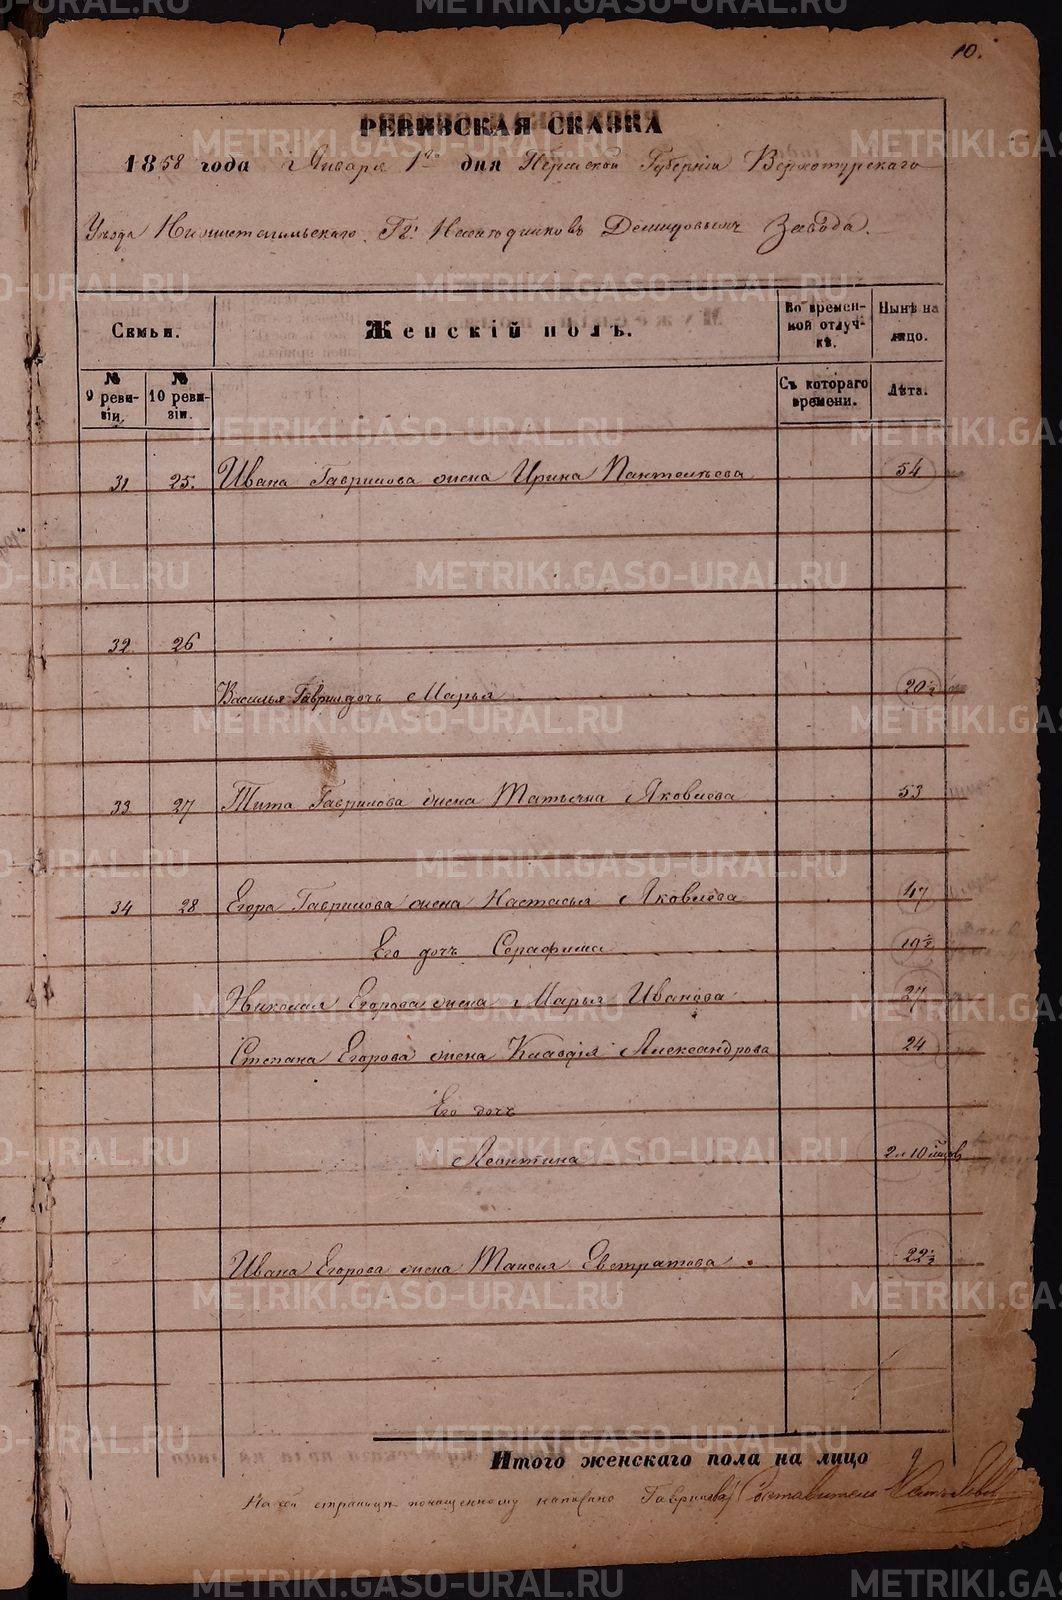 10.
РЕВИЗСКАЯ СКАЗКА
1858 года Января 1го дня Пермской Губерніи Верхотурскаго
Уѣзда Нижнетагильскаго Гг. Наслѣдниковъ Демидовыхъ Завода.
Семьи.
Женскій полъ.
Во времен-
ной отлуч-
кѣ.
Нынѣ на
лицо.
№
9 реви-
зіи.
№
10 реви-
зіи.
Съ котораго
времени.
Лѣта.
31 25. Ивана Гаврилова жена Ирина Пантелѣева 54
32 26
Василья Гаврил дочь Марья 20½
33 27 Тита Гаврилова жена Татьяна Яковлева 53
34 28 Егора Гаврилова жена Настасья Яковлева 47
Его дочь Серафима 19½
Николая Егорова жена Марья Иванова 27
Степана Егорова жена Клавдія Александрова 24
Его дочь
Леонтина 2 л 10 мѣсяцовъ
Ивана Егорова жена Таисья Евстратова 22½
Итого женскаго пола на лицо
На сей страницѣ по чищенному написано Гаврилова Составитель
METRIKI.GASO-URAL.RU